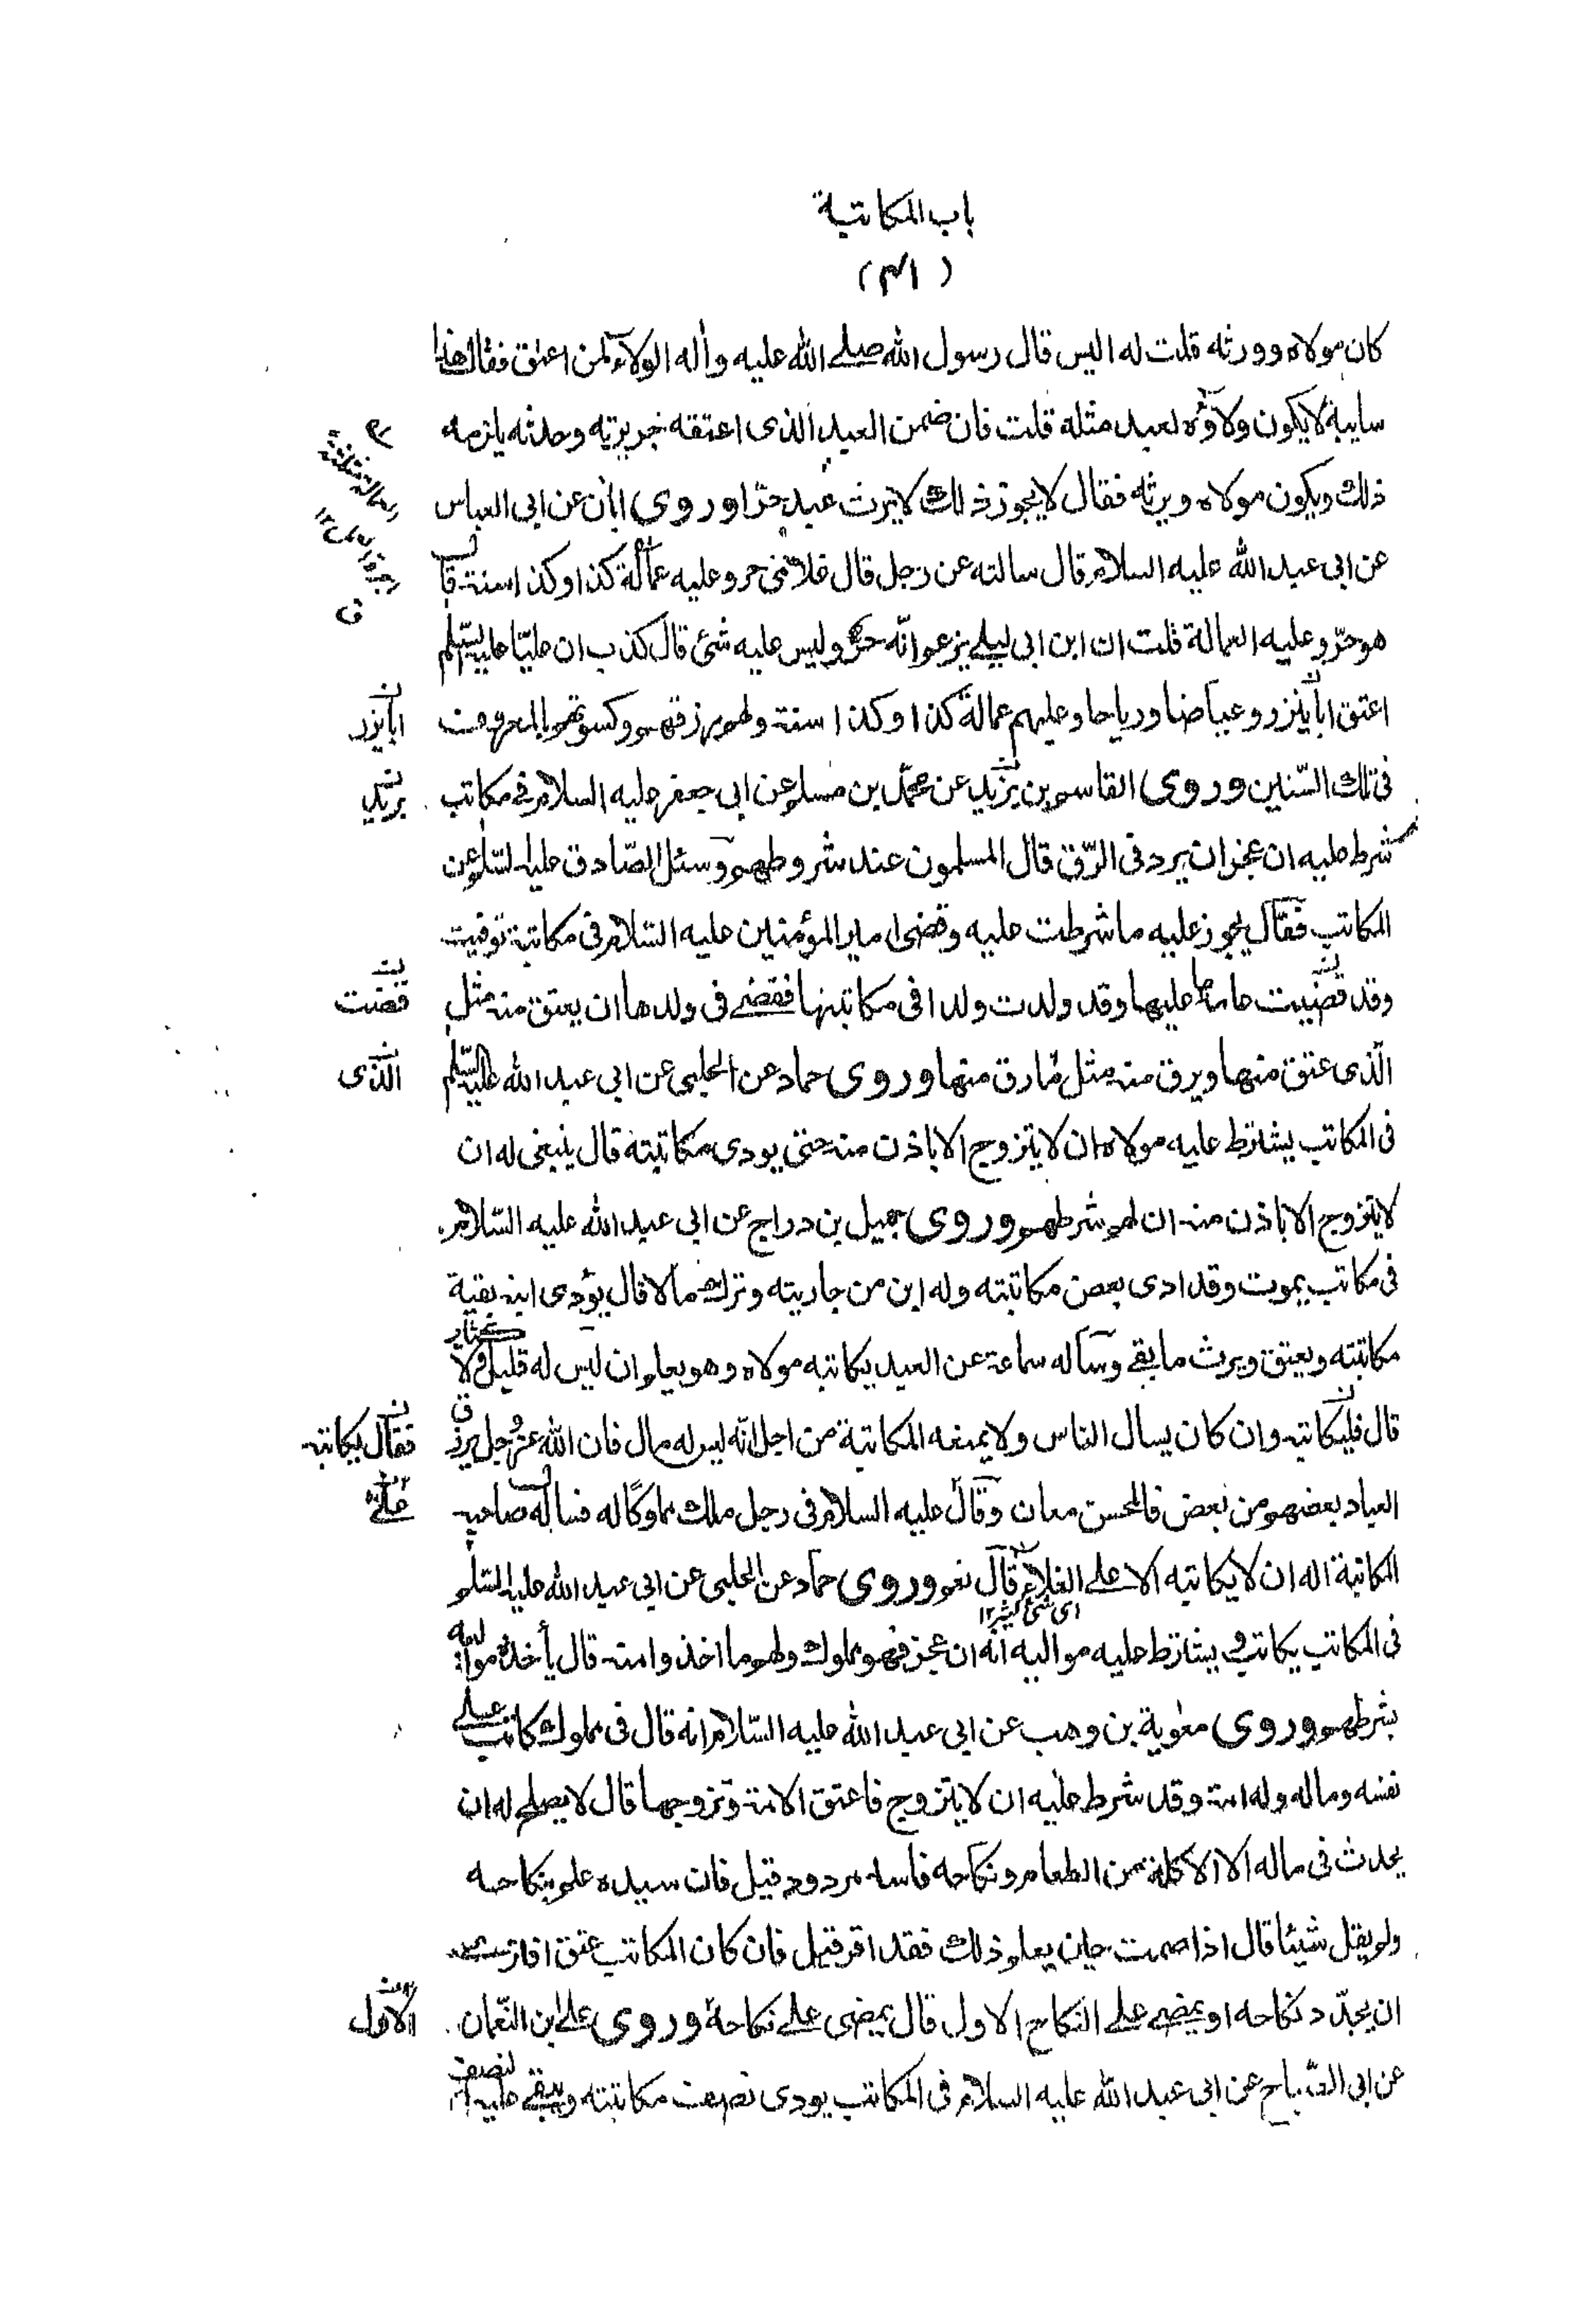 باب المكاتبة
(۴۱)
كان مولاه وورثه قلت له اليس قال رسول الله صلے الله عليه واله الولاء لمن اعتق فقال هذا
سايبة لا يكون ولاؤه لعبد مثله قلت فان ضمن العبد الذى اعتقه جريرته وحدثه يلزمه
ذلك ويكون مولاه ويرثه فقال لا يجوز ذلك لا يرث عبد حرّا وروى ابان عن ابى العباس
عن ابى عبد الله عليه السلام قال سالته عن رجل قال غلامى حر وعليه عمالة كذا وكذا سنة قال
هو حرّ وعليه العمالة قلت ان ابن ابى ليلے يزعم انّه حرّ وليس عليه شئ قال كذب ان عليّا عليه السّلم
اعتق ابا نيزر وعياضا ورياحا وعليهم عمالة كذا وكذا سنة ولهم رزقهم وكسوتهم بالمعروف
ابا يزر
فى تلك السّنين وروى القاسم بن بريد عن محمّد بن مسلم عن ابى جعفر عليه السلام فى مكاتب
بريد
شرط عليه ان عجز ان يرد فى الرّق قال المسلمون عند شروطهم وسئل الصّادق عليه السّلم عن
المكاتب فقال يجوز عليه ما شرطت عليه وقضى امير المؤمنين عليه السّلام فى مكاتبة توفيت
وقد قضيت عامة ما عليها وقد ولدت ولدا فى مكاتبتها فقضے فى ولدها ان يعتق منه مثل
قضت
الّذى عتق منها ويرق منه مثل ما رق منها وروى حماد عن الحلبى عن ابى عبد الله عليه السّلم
الذى
فى المكاتب يشترط عليه مولاه ان لا يتزوج الا باذن منه حتى يودى مكاتبته قال ينبغى له ان
لا يتزوج الا باذن منه ان لهم شرطهم وروى جميل بن دراج عن ابى عبد الله عليه السّلام
فى مكاتب يموت وقد ادى بعض مكاتبته وله ابن من جاريته وترك مالا قال يؤدى ابنه بقية
مكاتبته ويعتق ويرث ما بقے وساله سماعة عن العبد يكاتبه مولاه وهو يعلم ان ليس له قليل ولا كثير
قال فليكاتبه وان كان يسال الناس ولا يمنعه المكاتبة من اجل انّه ليس له مال فان الله عزوجل يرزق
فقال يكاتبه
العباد بعضهم من بعض فالمحسن معان وقال عليه السلام فى رجل ملك مملوكا له فساله صاحبه
المكاتبة اله ان لا يكاتبه الا علے الغلاء قال نعم وروى حمّاد عن الحلبى عن ابى عبد الله عليه السّلم
اى شئ كثير ۱۲
فى المكاتب يكاتب ويشترط عليه مواليه انه ان عجز فهو مملوك ولهم ما اخذوا منه قال يأخذه مواليه
بشرطهم وروى معٰوية بن وهب عن ابى عبد الله عليه السّلام انه قال فى مملوك كاتب علے
نفسه وماله وله امة وقد شرط عليه ان لا يتزوج فاعتق الامة وتزوجها قال لا يصلح له ان
يحدث فى ماله الا الاكلة من الطعام ونكاحه فاسد مردود قيل فان سيده علم بنكاحه
ولم يقل شيئا قال اذا صمت حين يعلم ذلك فقد اقر قيل فان كان المكاتب عتق افترى
ان يجدّد نكاحه او يمضے علے النكاح الاول قال يمضى علے نكاحه وروى علے ابن النّعمان
الاول
عن ابى الصّباح عن ابى عبد الله عليه السلام فى المكاتب يودى نصف مكاتبته ويبقے عليه النصف